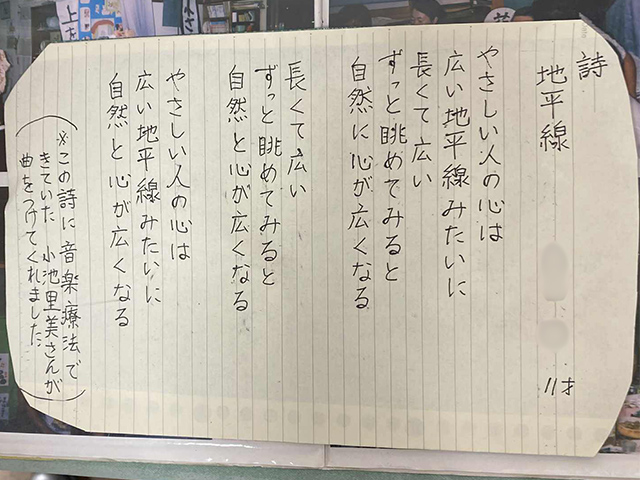 詩
地平線
11才
やさしい人の心は
広い地平線みたいに
長くて広い
ずっと眺めてみると
自然に心が広くなる
長くて広い
ずっと眺めてみると
自然と心が広くなる
やさしい人の心は
広い地平線みたいに
自然と心が広くなる
(※この詩に音楽療法で
きていた 小池里美さんが
曲をつけてくれました)